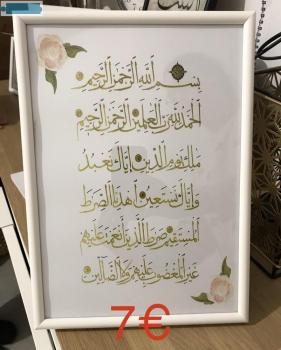 بسم الله الرحمن الرحيم
الحمد لله رب العلمين الرحمن الرحيم
ملك يوم الدين إياك نعبد
وإياك نستعين اهدنا الصرط
المستقيم صرط الذين أنعمت عليهم
غير المغضوب عليهم ولا الضالين
7€